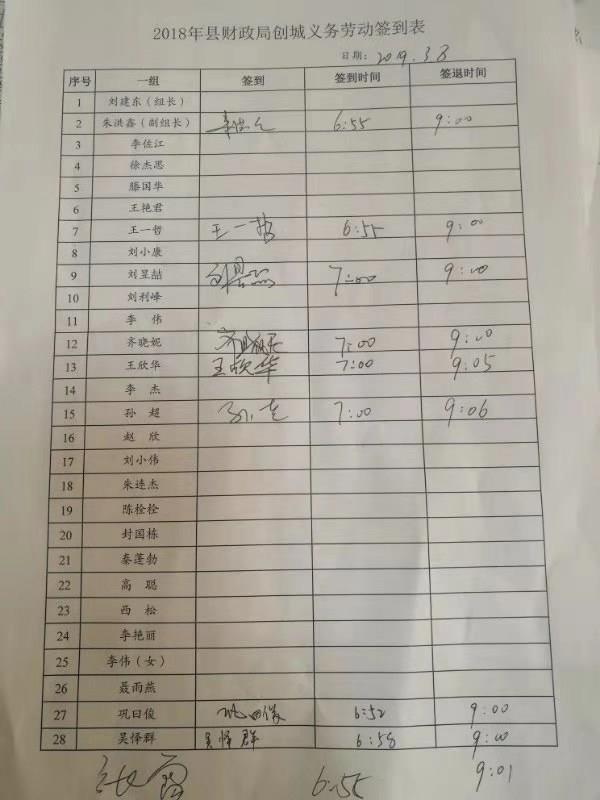 2018年县财政局创城义务劳动签到表
日期：2019.3.8
序号 一组 签到 签到时间 签退时间
1 刘建东（组长）
2 朱洪鑫（副组长） 6:55 9:00
3 李佐江
4 徐杰思
5 滕国华
6 王艳君
7 王一哲 王一哲 6:55 9:00
8 刘小康
9 刘昱喆 刘昱喆 7:00 9:00
10 刘利峰
11 李 伟
12 齐晓妮 齐晓妮 7:00 9:00
13 王欣华 王欣华 7:00 9:05
14 李 杰
15 孙 超 孙超 7:00 9:06
16 赵 欣
17 刘小伟
18 朱连杰
19 陈栓栓
20 封国栋
21 秦蓬勃
22 高 聪
23 西 松
24 李艳丽
25 李伟（女）
26 聂雨燕
27 巩日俊 巩日俊 6:52 9:00
28 吴怿群 吴怿群 6:58 9:00
6:55 9:01